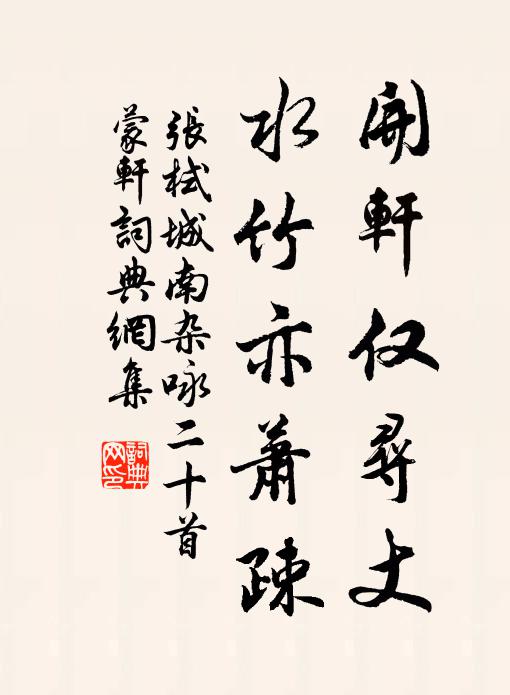 開軒仅尋丈
水竹亦蕭疎
張栻城南杂咏二十首
蒙軒詞典網集
詞典网印